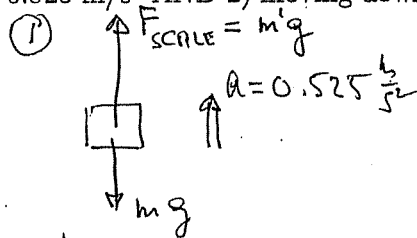 ① F_SCALE = m'g
a = 0.525 m/s²
mg